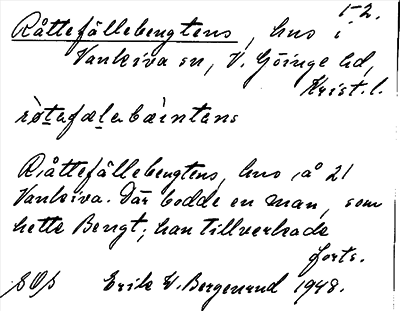 1-2.
Råttefällebengtens, hus i
Vankiva sn, V. Göinge hd,
Krist. l.
rø̀tafælabæ̀intans
Råttefällebengtens, hus, å 21
Vankiva. Där bodde en man, som
hette Bengt; han tillverkade
forts.
SOS Erik W. Bergenrud 1948.